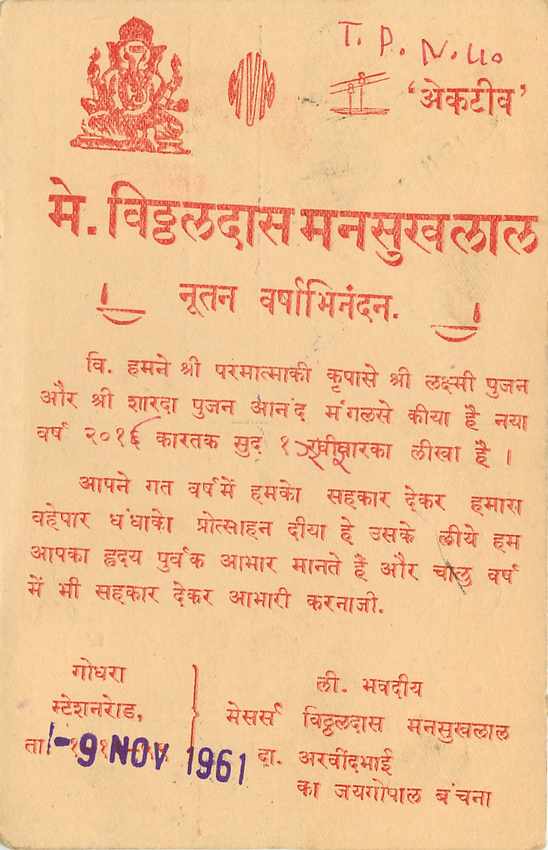 T. P. N. 40
‘अेकटीव’
मे. विठ्ठलदास मनसुखलाल
नूतन वर्षाभिनंदन.
वि. हमने श्री परमात्माकी कृपासे श्री लक्ष्मी पुजन
और श्री शारदा पुजन आनंद मंगलसे कीया है नया
वर्ष २०१६ कारतक सुद १ का लीखा है ।
आपने गत वर्षमें हमको सहकार देकर हमारा
वहेपार धंधाको प्रोत्साहन दीया हे उसके लीये हम
आपका हृदय पुर्वक आभार मानते हैं और चालु वर्ष
में भी सहकार देकर आभारी करनाजी.
गोधरा
स्टेशनरोड,
ता
-9 NOV 1961
ली. भवदीय
मेसर्स विठ्ठलदास मनसुखलाल
दा. अरवींदभाई
का जयगोपाल बंचना